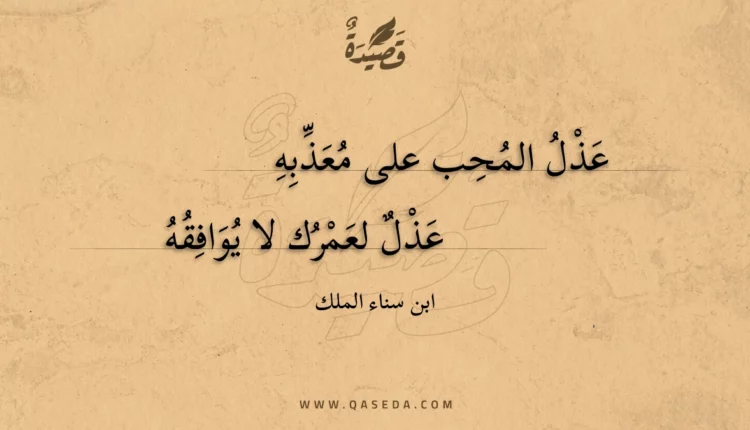 قَصِيدَةٌ
عَذْلُ المُحِب على مُعَذِّبِهِ
عَذْلٌ لعَمْرُك لا يُوَافِقُهُ
ابن سناء الملك
WWW.QASEDA.COM